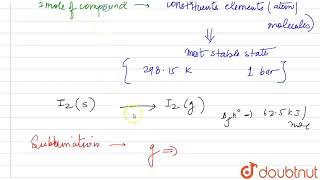 1 mole of compound → constituents elements (atoms/
molecules)
most stable state
{ 298.15 K 1 bar }
I₂(s) → I₂(g) ΔfH° → 62.5 kJ/
s mole
Sublimation → g ⇒
doubtnut